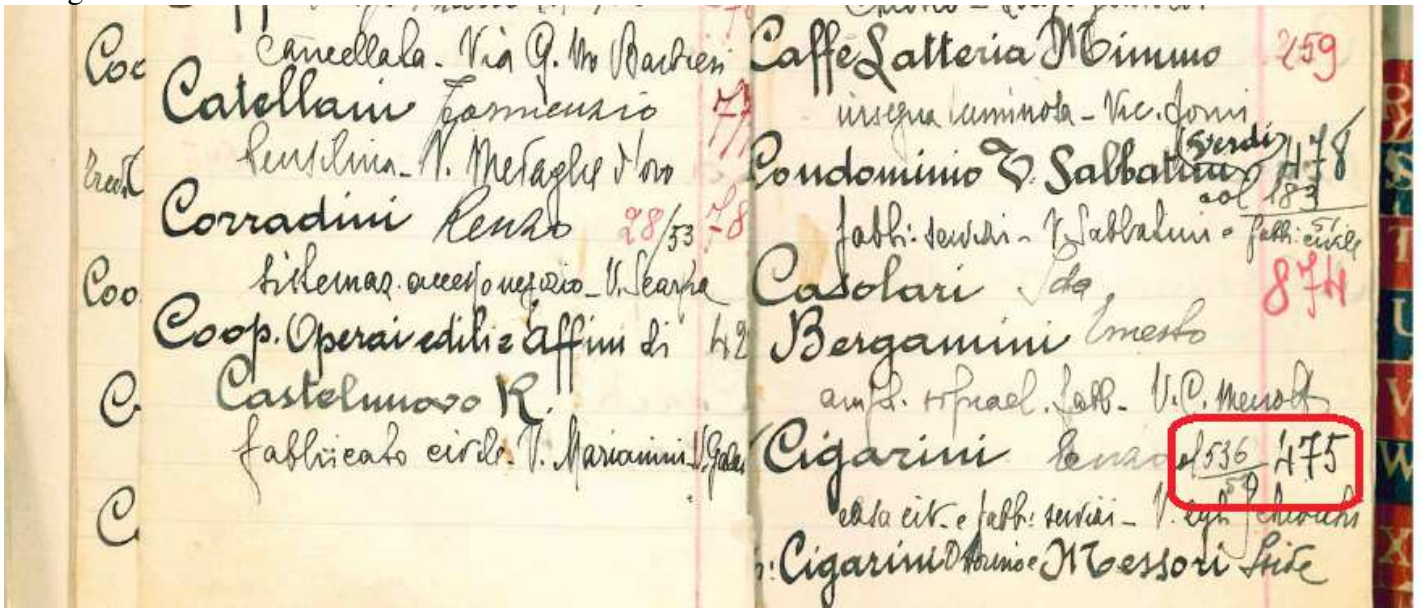 Coo
Credit
Coo
C
C
cancellata - Via G. M. Barbieri
Catellani Fermenzio 77
Pensilina - V. Medaglie d'oro
Corradini Renzo 28/53 78
sistemaz. accesso negozio - V. Scarpa
Coop. Operai edili e affini di 42
Castelnuovo R.
fabbricato civile - V. Marianini V.
Caffè Latteria Mimmo 259
insegna luminosa - Vic. Forni
Condominio V. Sabbatini (Verdi) 478
col 183
fabbr. servizi - V. Sabbatini e fabbr. civile 51
Casolari Ida 874
Bergamini Ernesto
V. C. Menotti
Cigarini Enzo col 536 475
casa civ. e fabbr. servizi - V.
Cigarini e Messori Iside
S
T
U
V
W
X